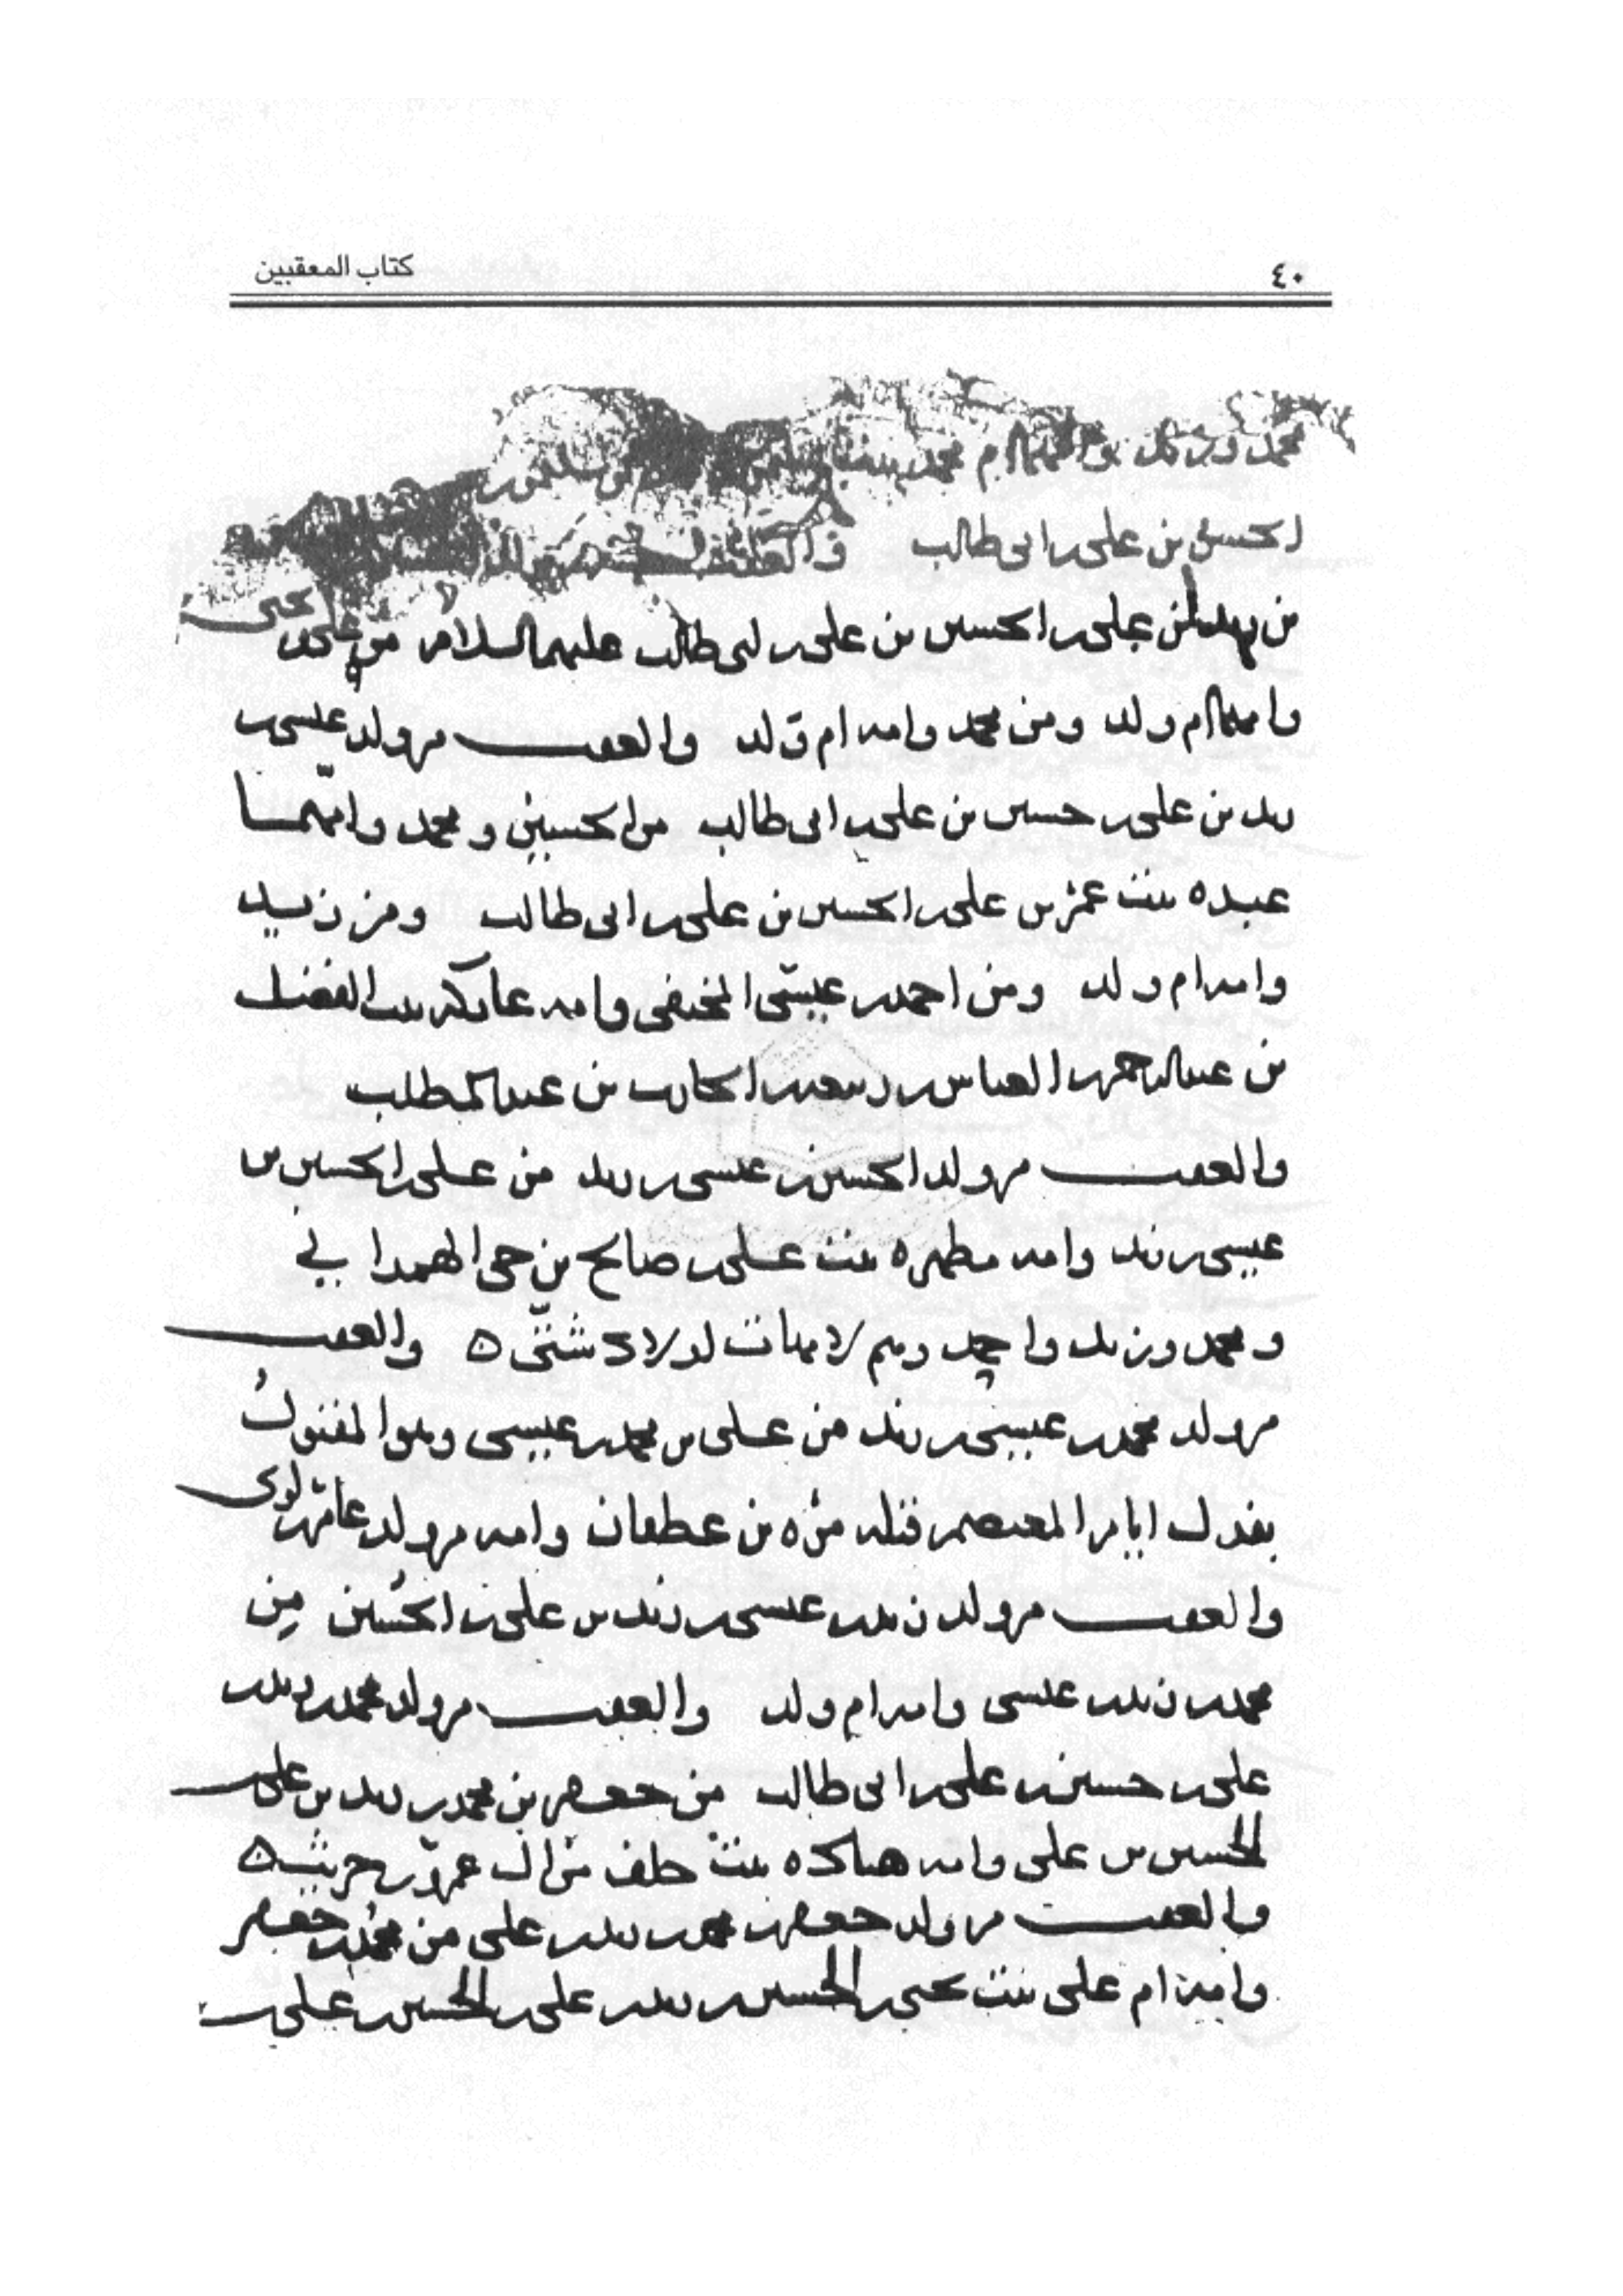 ٤٠
كتاب المعقبين
محمد
الحسين بن على بن ابى طالب
من على بن الحسين بن على بن ابى طالب عليهم السلام من يحيى
وامهما ام ولد ومن محمد وامه ام ولد والعقب من ولد عيسى بن
زيد بن على بن حسين بن على بن ابى طالب من الحسين ومحمد وامهما
عبده بنت عمر بن على بن الحسين بن على بن ابى طالب ومن زيد
وامه ام ولد ومن احمد بن عيسى المختفى وامه عاتكه بنت الفضل
بن عبد الرحمن بن العباس بن ربيعه بن الحارث بن عبد المطلب
والعقب من ولد الحسين بن عيسى بن زيد من على بن الحسين بن
عيسى بن زيد وامه مطهره بنت على بن صالح بن حى الهمدانى
ومحمد وزيد واحمد وهم لامهات اولاد شتى ٥ والعقب
من ولد محمد بن عيسى بن زيد من على بن محمد بن عيسى وهو المقتول
بفدك ايام المعتصم قتله مره بن غطفان وامه من ولد عامر بن لوى
والعقب من ولد زيد بن عيسى بن زيد بن على بن الحسين من
محمد بن زيد بن عيسى وامه ام ولد والعقب من ولد محمد بن زيد بن
على بن حسين بن على بن ابى طالب من جعفر بن محمد بن زيد بن على بن
الحسين بن على وامه بنت خلف من ال عمرو بن حريث ٥
والعقب من ولد جعفر بن محمد بن زيد بن على من محمد بن جعفر
وامه ام على بنت يحيى بن الحسين بن زيد بن على بن الحسين بن على بن